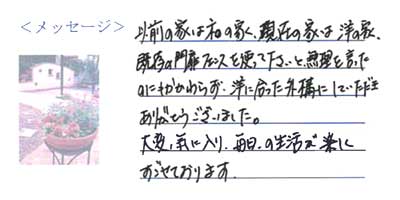 ＜メッセージ＞
以前の家は和の家、現在の家は洋の家、
既存の門扉フェンスを使て下さいと、無理を言た
のにもかかわらず、洋に合った外構にしていただき
ありがとうございました。
大変、気に入り、毎日、の生活が楽に
すごせております。